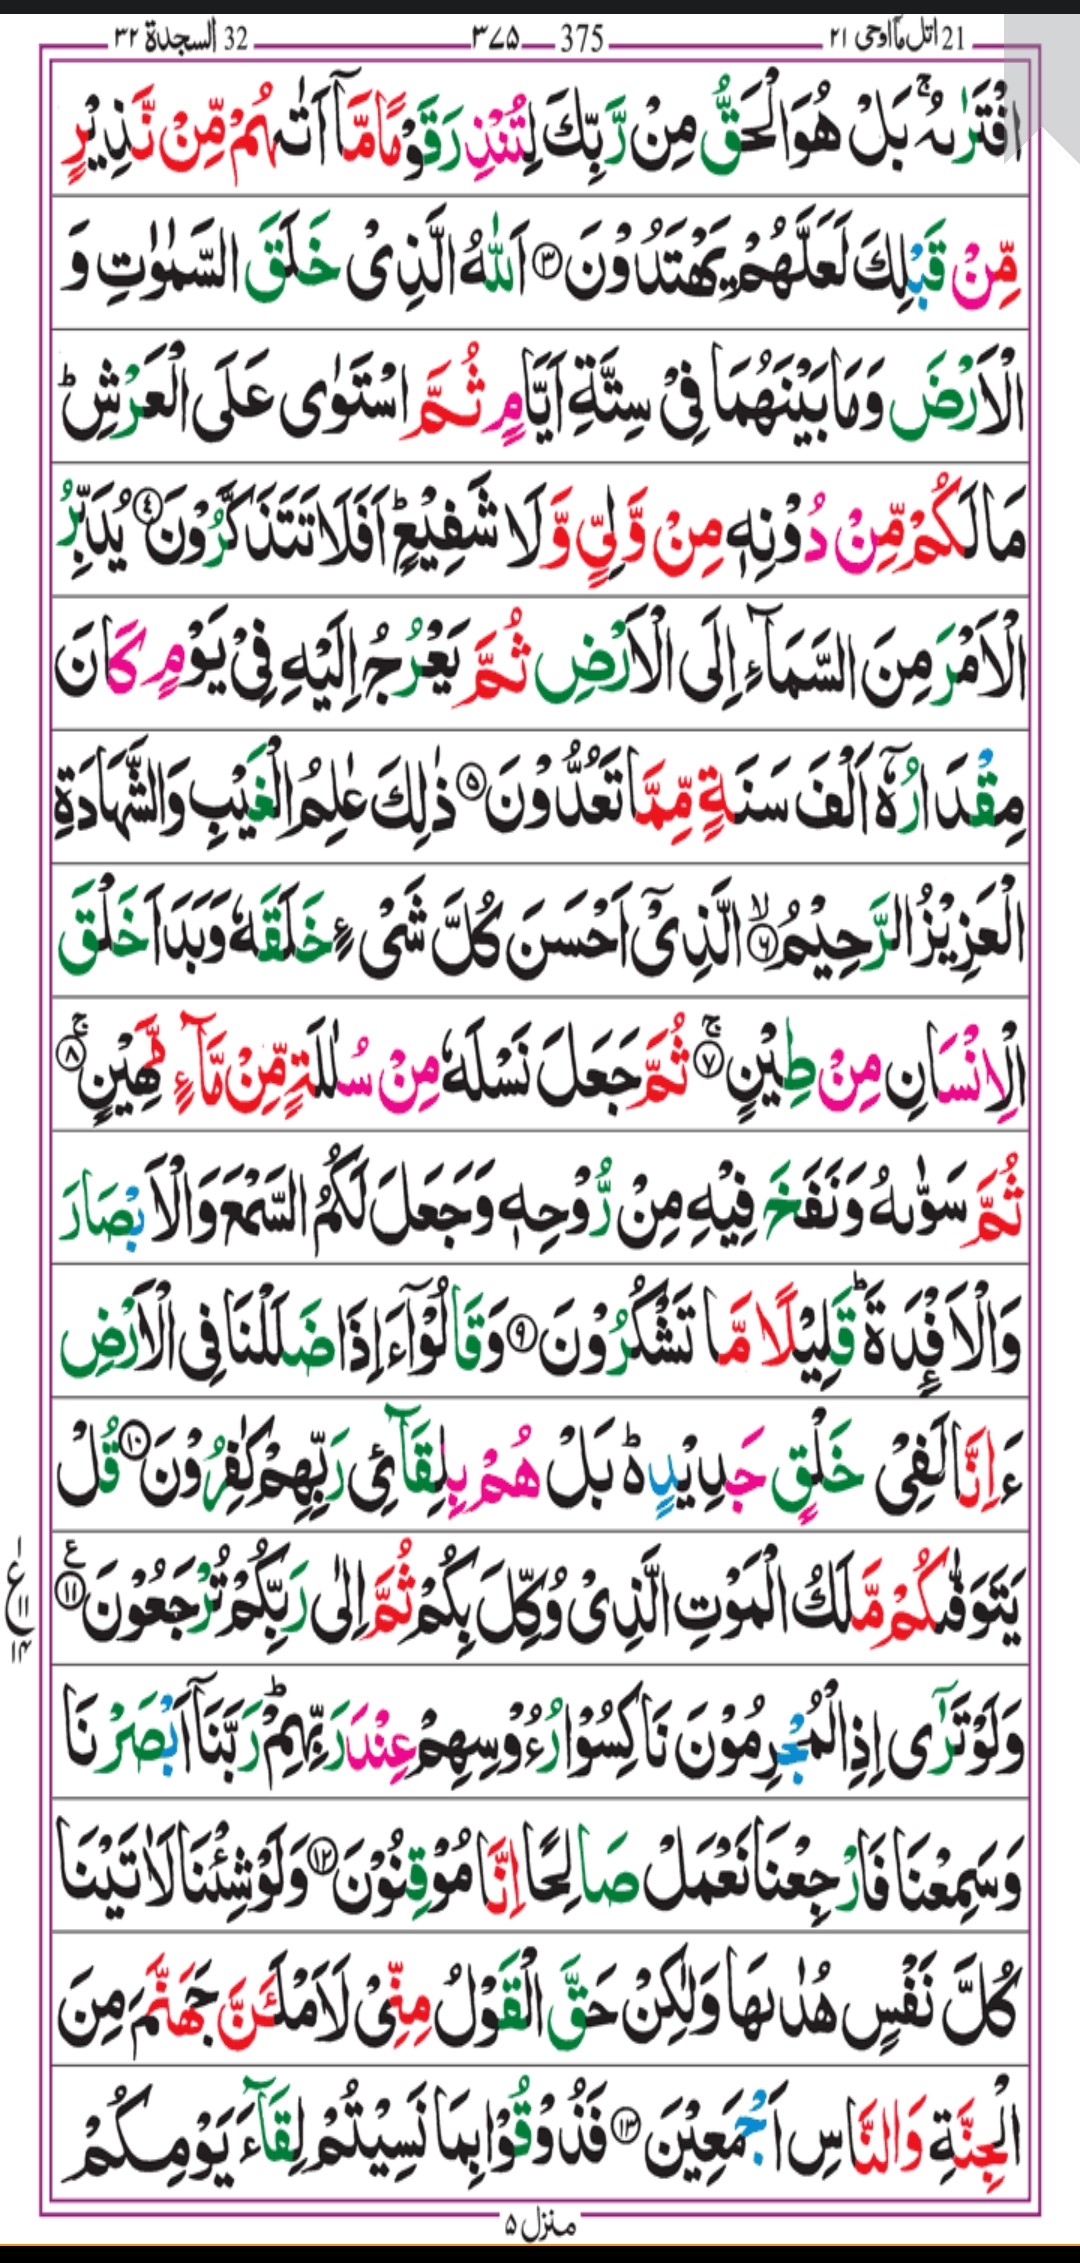 21 اتل مآاوحی ۲۱ 375 ۳۷۵ 32 السجدة ۳۲
افْتَرٰىهُ ۚ بَلْ هُوَ الْحَقُّ مِنْ رَّبِّكَ لِتُنْذِرَ قَوْمًا مَّاۤ اَتٰىهُمْ مِّنْ نَّذِيْرٍ
مِّنْ قَبْلِكَ لَعَلَّهُمْ يَهْتَدُوْنَ ۝۳ اَللّٰهُ الَّذِىْ خَلَقَ السَّمٰوٰتِ وَ
الْاَرْضَ وَمَا بَيْنَهُمَا فِىْ سِتَّةِ اَيَّامٍ ثُمَّ اسْتَوٰى عَلَى الْعَرْشِ ؕ
مَا لَكُمْ مِّنْ دُوْنِهٖ مِنْ وَّلِىٍّ وَّلَا شَفِيْعٍ ؕ اَفَلَا تَتَذَكَّرُوْنَ ۝۴ يُدَبِّرُ
الْاَمْرَ مِنَ السَّمَآءِ اِلَى الْاَرْضِ ثُمَّ يَعْرُجُ اِلَيْهِ فِىْ يَوْمٍ كَانَ
مِقْدَارُهٗۤ اَلْفَ سَنَةٍ مِّمَّا تَعُدُّوْنَ ۝۵ ذٰلِكَ عٰلِمُ الْغَيْبِ وَالشَّهَادَةِ
الْعَزِيْزُ الرَّحِيْمُ ۙ۝۶ الَّذِىْۤ اَحْسَنَ كُلَّ شَىْءٍ خَلَقَهٗ وَبَدَاَ خَلْقَ
الْاِنْسَانِ مِنْ طِيْنٍ ۚ۝۷ ثُمَّ جَعَلَ نَسْلَهٗ مِنْ سُلٰلَةٍ مِّنْ مَّآءٍ مَّهِيْنٍ ۚ۝۸
ثُمَّ سَوّٰىهُ وَنَفَخَ فِيْهِ مِنْ رُّوْحِهٖ وَجَعَلَ لَكُمُ السَّمْعَ وَالْاَبْصَارَ
وَالْاَفْـِٕدَةَ ؕ قَلِيْلًا مَّا تَشْكُرُوْنَ ۝۹ وَقَالُوْۤا ءَاِذَا ضَلَلْنَا فِى الْاَرْضِ
ءَاِنَّا لَفِىْ خَلْقٍ جَدِيْدٍ ؕ بَلْ هُمْ بِلِقَآئِ رَبِّهِمْ كٰفِرُوْنَ ۝۱۰ قُلْ
يَتَوَفّٰىكُمْ مَّلَكُ الْمَوْتِ الَّذِىْ وُكِّلَ بِكُمْ ثُمَّ اِلٰى رَبِّكُمْ تُرْجَعُوْنَ ۝۱۱ ع
ع ۱۱ ۱۴
وَلَوْ تَرٰۤى اِذِ الْمُجْرِمُوْنَ نَاكِسُوْا رُءُوْسِهِمْ عِنْدَ رَبِّهِمْ ؕ رَبَّنَاۤ اَبْصَرْنَا
وَسَمِعْنَا فَارْجِعْنَا نَعْمَلْ صَالِحًا اِنَّا مُوْقِنُوْنَ ۝۱۲ وَلَوْ شِئْنَا لَاٰتَيْنَا
كُلَّ نَفْسٍ هُدٰىهَا وَلٰكِنْ حَقَّ الْقَوْلُ مِنِّىْ لَاَمْلَئَنَّ جَهَنَّمَ مِنَ
الْجِنَّةِ وَالنَّاسِ اَجْمَعِيْنَ ۝۱۳ فَذُوْقُوْا بِمَا نَسِيْتُمْ لِقَآءَ يَوْمِكُمْ
منزل ۵